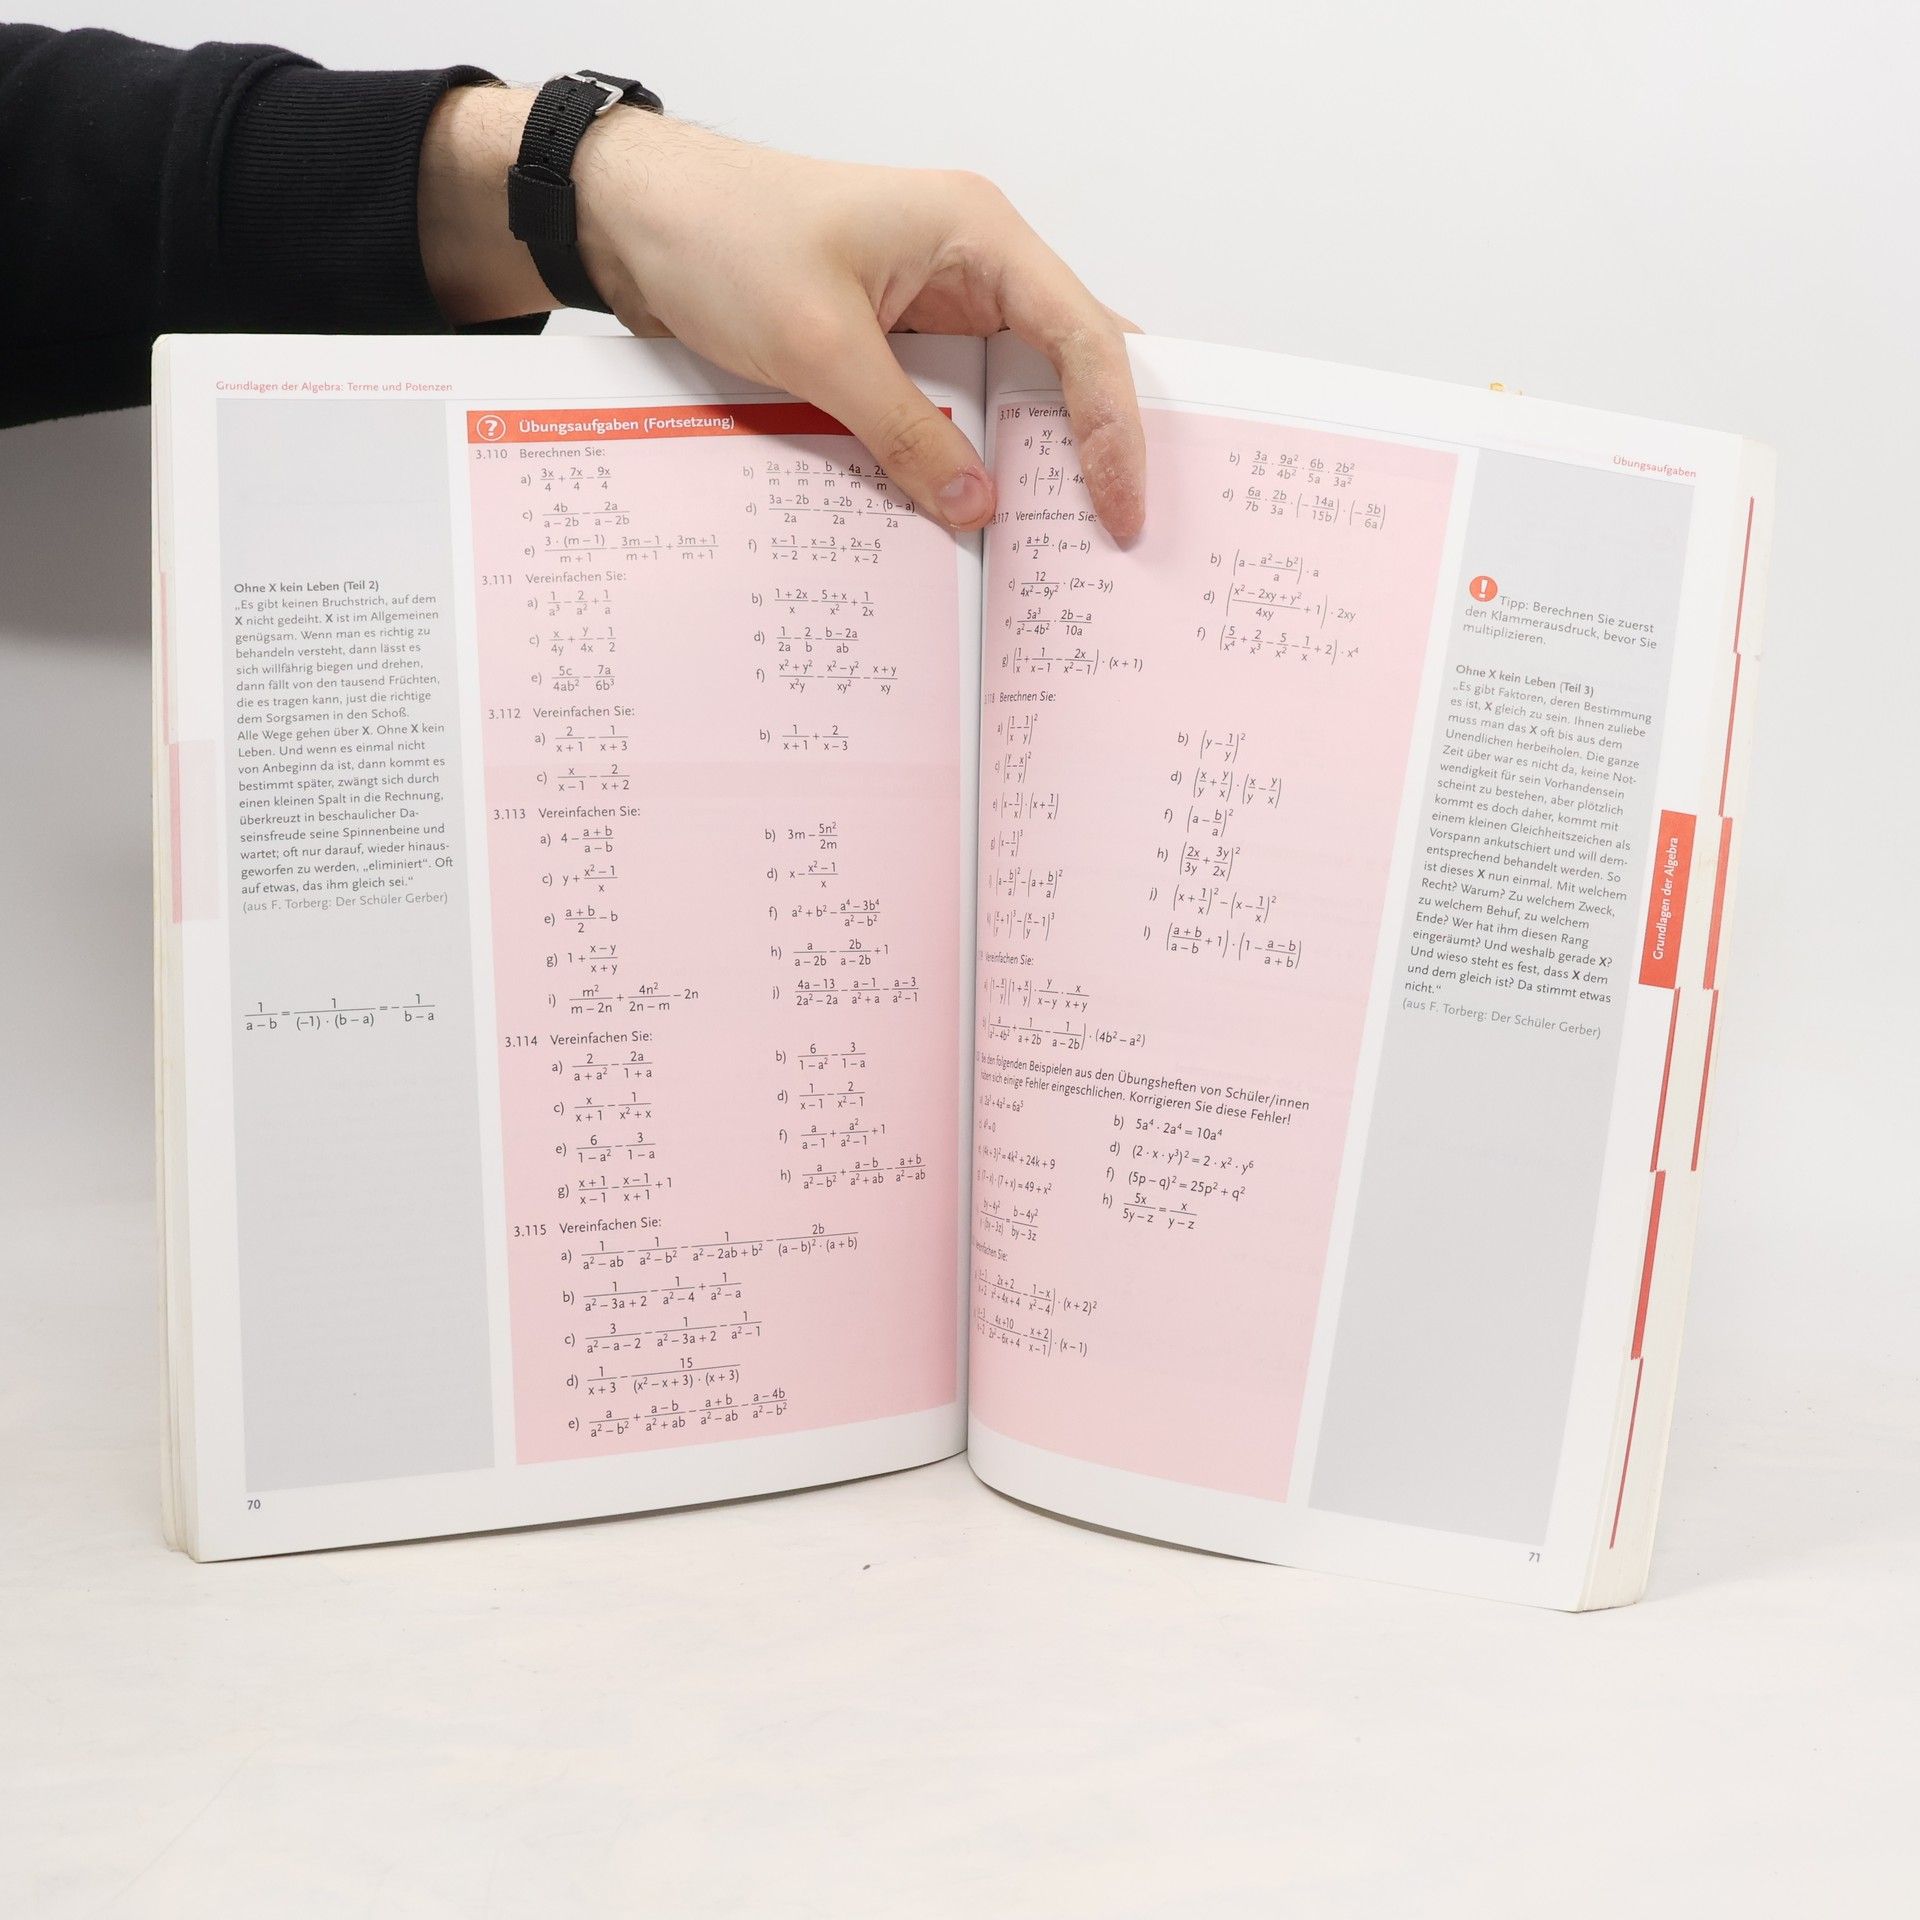 Grundlagen der Algebra: Terme und Potenzen
Ohne X kein Leben (Teil 2)
„Es gibt keinen Bruchstrich, auf dem
X nicht gedeiht. X ist im Allgemeinen
genügsam. Wenn man es richtig zu
behandeln versteht, dann lässt es
sich willfährig biegen und drehen,
dann fällt von den tausend Früchten,
die es tragen kann, just die richtige
dem Sorgsamen in den Schoß.
Alle Wege gehen über X. Ohne X kein
Leben. Und wenn es einmal nicht
von Anbeginn da ist, dann kommt es
bestimmt später, zwängt sich durch
einen kleinen Spalt in die Rechnung,
überkreuzt in beschaulicher Da-
seinsfreude seine Spinnenbeine und
wartet; oft nur darauf, wieder hinaus-
geworfen zu werden, „eliminiert“. Oft
auf etwas, das ihm gleich sei.“
(aus F. Torberg: Der Schüler Gerber)
1/(a – b) = 1/((–1) · (b – a)) = – 1/(b – a)
70
? Übungsaufgaben (Fortsetzung)
3.110 Berechnen Sie:
a) 3x/4 + 7x/4 – 9x/4
b) 2a/m + 3b/m – b/m + 4a/m –
c) 4b/(a – 2b) – 2a/(a – 2b)
d) (3a – 2b)/2a – (a – 2b)/2a + 2 · (b – a)/2a
e) 3 · (m – 1)/(m + 1) – (3m – 1)/(m + 1) + (3m + 1)/(m + 1)
f) (x – 1)/(x – 2) – (x – 3)/(x – 2) + (2x – 6)/(x – 2)
3.111 Vereinfachen Sie:
a) 1/a³ – 2/a² + 1/a
b) (1 + 2x)/x – (5 + x)/x² + 1/2x
c) x/4y + y/4x – 1/2
d) 1/2a – 2/b – (b – 2a)/ab
e) 5c/4ab² – 7a/6b³
f) (x² + y²)/x²y – (x² – y²)/xy² – (x + y)/xy
3.112 Vereinfachen Sie:
a) 2/(x + 1) – 1/(x + 3)
b) 1/(x + 1) + 2/(x – 3)
c) x/(x – 1) – 2/(x + 2)
3.113 Vereinfachen Sie:
a) 4 – (a + b)/(a – b)
b) 3m – 5n²/2m
c) y + (x² – 1)/x
d) x – (x² – 1)/x
e) (a + b)/2 – b
f) a² + b² – (a⁴ – 3b⁴)/(a² – b²)
g) 1 + (x – y)/(x + y)
h) a/(a – 2b) – 2b/(a – 2b) + 1
i) m²/(m – 2n) + 4n²/(2n – m) – 2n
j) (4a – 13)/(2a² – 2a) – (a – 1)/(a² + a) – (a – 3)/(a² – 1)
3.114 Vereinfachen Sie:
a) 2/(a + a²) – 2a/(1 + a)
b) 6/(1 – a²) – 3/(1 – a)
c) x/(x + 1) – 1/(x² + x)
d) 1/(x – 1) – 2/(x² – 1)
e) 6/(1 – a²) – 3/(1 – a)
f) a/(a – 1) + a²/(a² – 1) + 1
g) (x + 1)/(x – 1) – (x – 1)/(x + 1) + 1
h) a/(a² – b²) + (a – b)/(a² + ab) – (a + b)/(a² – ab)
3.115 Vereinfachen Sie:
a) 1/(a² – ab) – 1/(a² – b²) – 1/(a² – 2ab + b²) – 2b/((a – b)² · (a + b))
b) 1/(a² – 3a + 2) – 1/(a² – 4) + 1/(a² – a)
c) 3/(a² – a – 2) – 1/(a² – 3a + 2) – 1/(a² – 1)
d) 1/(x + 3) – 15/((x² – x + 3) · (x + 3))
e) a/(a² – b²) + (a – b)/(a² + ab) – (a + b)/(a² – ab) – (a – 4b)/(a² – b²)
Übungsaufgaben
3.116
a) xy/3c · 4x
b) 3a/2b · 9a²/4b² · 6b/5a · 2b²/3a²
c) (– 3x/y) · 4x
d) 6a/7b · 2b/3a · (– 14a/15b) · (– 5b/6a)
Vereinfachen Sie:
a) (a + b)/2 · (a – b)
b) (a – (a² – b²)/a) · a
c) 12/(4x² – 9y²) · (2x – 3y)
d) ((x² – 2xy + y²)/4xy + 1) · 2xy
e) 5a³/(a² – 4b²) · (2b – a)/10a
f) (5/x⁴ + 2/x³ – 5/x² – 1/x + 2) · x⁴
g) (1/x + 1/(x – 1) – 2x/(x² – 1)) · (x + 1)
Berechnen Sie:
a) (1/x – 1/y)²
b) (y – 1/y)²
c) (y/x – x/y)²
d) (x/y + y/x) · (x/y – y/x)
e) (x – 1/x) · (x + 1/x)
f) (a – b/a)²
g) (x – 1/x)³
h) (2x/3y + 3y/2x)²
i) (a – b/a)² – (a + b/a)²
j) (x + 1/x)² – (x – 1/x)²
(x/y + 1)³ – (x/y – 1)³
l) ((a + b)/(a – b) + 1) · (1 – (a – b)/(a + b))
Vereinfachen Sie:
(1 – x/y) (1 + x/y) · y/(x – y) · x/(x + y)
(a/(a² – 4b²) + 1/(a + 2b) – 1/(a – 2b)) · (4b² – a²)
den folgenden Beispielen aus den Übungsheften von Schüler/innen
haben sich einige Fehler eingeschlichen. Korrigieren Sie diese Fehler!
b) 5a⁴ · 2a⁴ = 10a⁴
d) (2 · x · y³)² = 2 · x² · y⁶
(4k + 3)² = 4k² + 24k + 9
f) (5p – q)² = 25p² + q²
(7 – x) · (7 + x) = 49 + x²
h) 5x/(5y – z) = x/(y – z)
= (b – 4y²)/(by – 3z)
· (x + 2)²
· (x – 1)
! Tipp: Berechnen Sie zuerst
den Klammerausdruck, bevor Sie
multiplizieren.
Ohne X kein Leben (Teil 3)
„Es gibt Faktoren, deren Bestimmung
es ist, X gleich zu sein. Ihnen zuliebe
muss man das X oft bis aus dem
Unendlichen herbeiholen. Die ganze
Zeit über war es nicht da, keine Not-
wendigkeit für sein Vorhandensein
scheint zu bestehen, aber plötzlich
kommt es doch daher, kommt mit
einem kleinen Gleichheitszeichen als
Vorspann ankutschiert und will dem-
entsprechend behandelt werden. So
ist dieses X nun einmal. Mit welchem
Recht? Warum? Zu welchem Zweck,
zu welchem Behuf, zu welchem
Ende? Wer hat ihm diesen Rang
eingeräumt? Und weshalb gerade X?
Und wieso steht es fest, dass X dem
und dem gleich ist? Da stimmt etwas
nicht.“
(aus F. Torberg: Der Schüler Gerber)
Grundlagen der Algebra
71